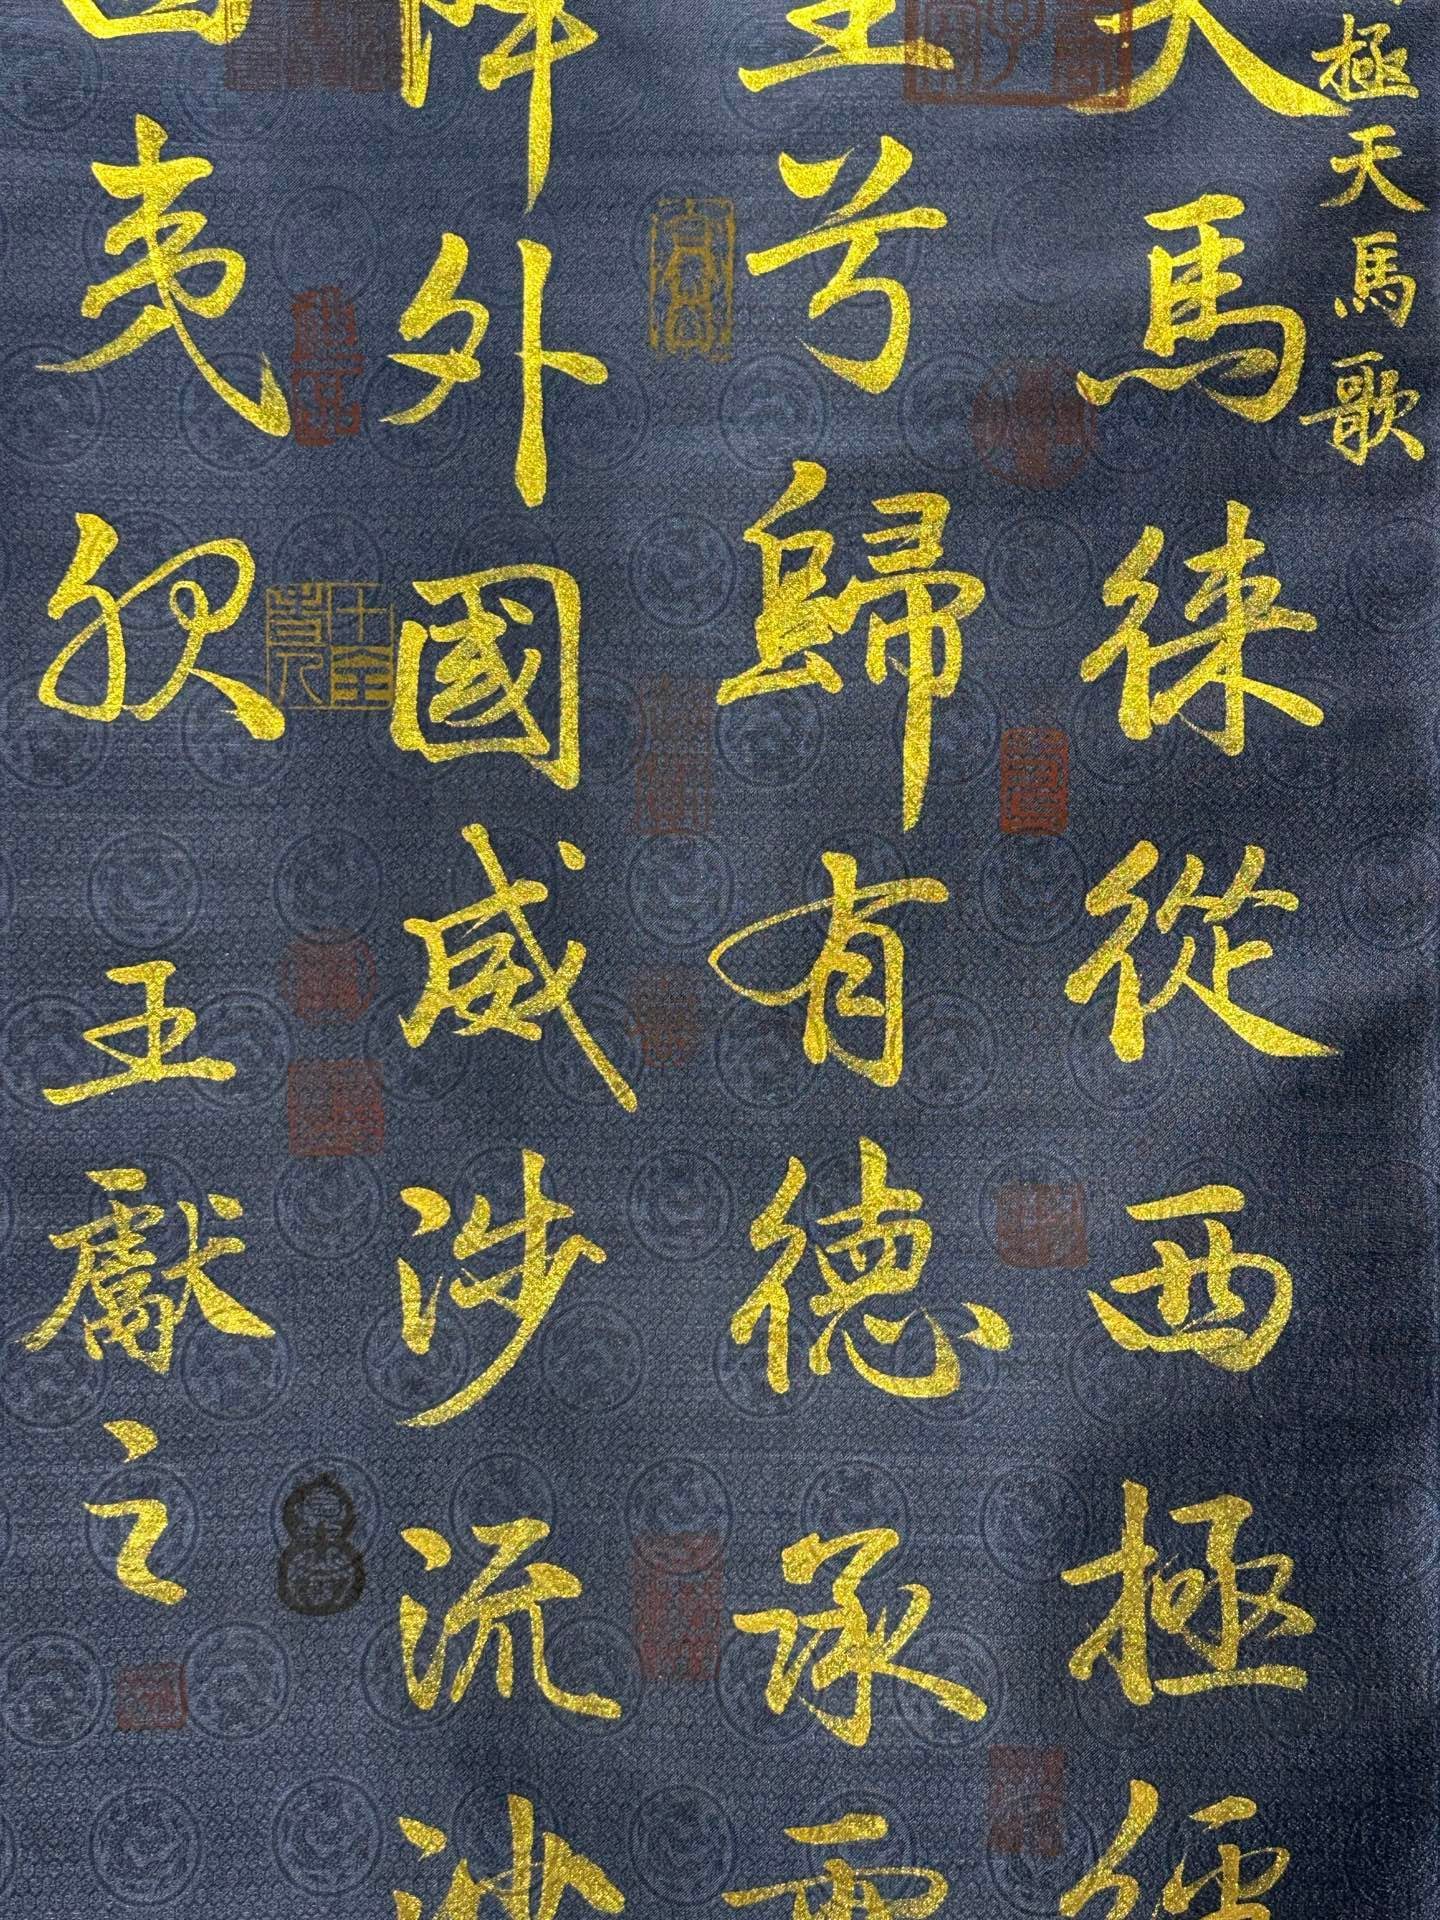 極天馬歌
天馬徠從西極經
里兮歸有德承靈
降外國威涉流沙
四夷服王獻之